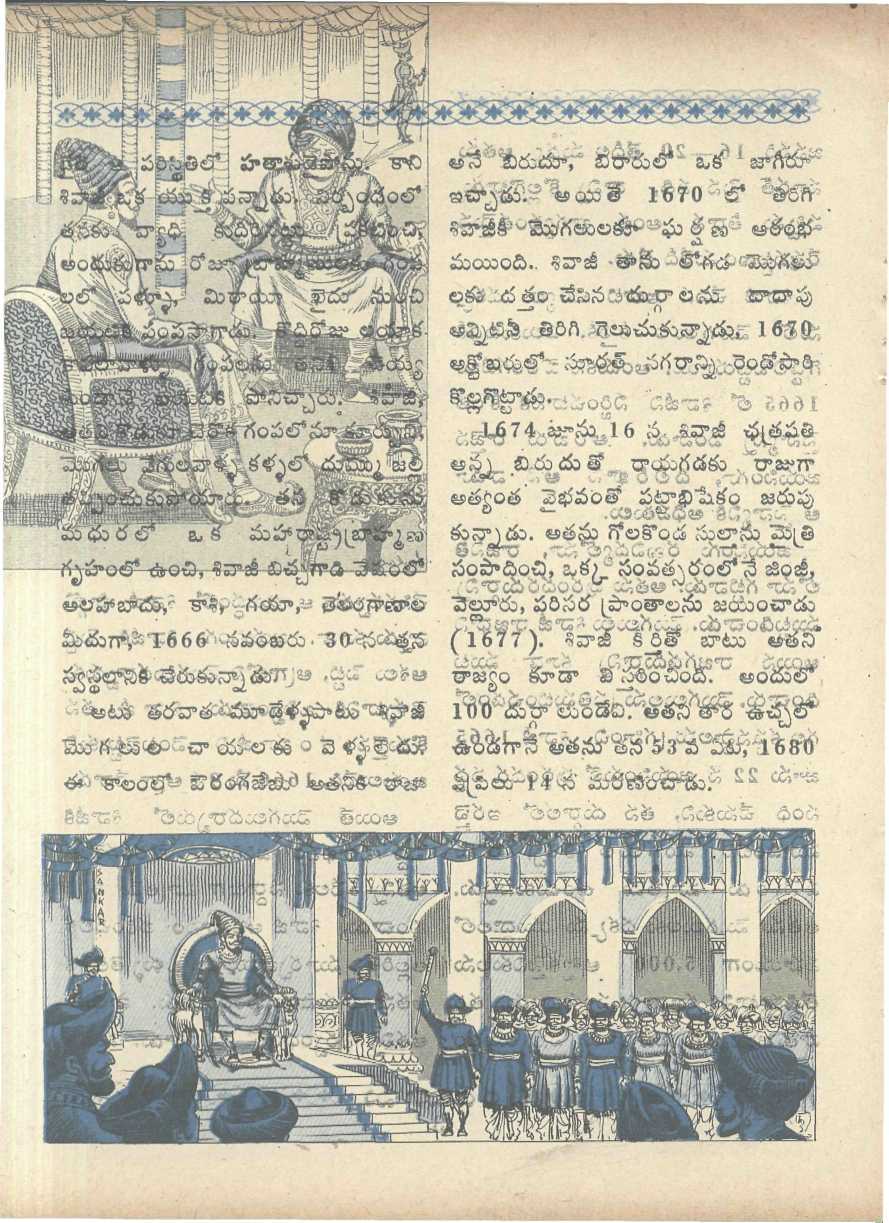 పరిస్థితిలో హతాశుడైపోను. కాని
శివాజీ ఒక యుక్తి పన్నాడు. నిర్బంధంలో
తనకు వ్యాధి కుదిరినట్టు ప్రకటించి,
అందుకుగాను రోజూ బ్రాహ్మణులకు గంప
లలో పళ్ళూ, మిఠాయీ ఖైదు నుంచి
బయటికి పంపసాగాడు. కొదిరోజు లయాక
కాపలావాళ్ళు గంపలను తనిఖీ చెయ్య
కుండానే బయటికి పోనిచ్చారు. శివాజీ,
అతని కొడుకూ చెరొక గంపలోనూ కూర్చుని,
మొగలు వేగులవాళ్ళ కళ్ళలో దుమ్ము జల్లి
తప్పించుకుపోయారు. తన కొడుకును
మధురలో ఒక మహారాష్ట్ర బ్రాహ్మణ
గృహంలో ఉంచి, శివాజీ బిచ్చగాడి వేషంలో
అలహాబాదు, కాశి, గయా, తెలంగాణాల
మీదుగా, 1666 నవంబరు 30 నంత్తన
స్వస్థలానికి చేరుకున్నాడు.
అటు తరవాత మూడేళ్ళుపాటు శివాజీ
మొగలుల చాయలకు వెళ్ళలేదు.
ఈ కాలంలో ఔరంగజేబు అతనికి రాజా
అనే బిరుదూ, బిరారులో ఒక జాగీరూ
ఇచ్చాడు. అయితే 1670 లో తిరిగి
శివాజీకీ మొగలులకూ ఘర్షణ ఆరంభ
మయింది. శివాజీ తాను లోగడ మొగలు
లకు దత్తం చేసిన దుర్గాలను దాదాపు
అన్నిటినీ తిరిగి గెలుచుకున్నాడు. 1670
అక్టోబరులో సూరత్ నగరాన్ని రెండోసారి
కొల్లగొట్టాడు.
1674 జూను 16 న శివాజీ ఛత్రపతి
అన్న బిరుదుతో రాయగడకు రాజుగా
అత్యంత వైభవంతో పట్టాభిషేకం జరుపు
కున్నాడు. అతను గోలకొండ సులాను మైత్రి
సంపాదించి, ఒక్క సంవత్సరంలోనే జింజీ,
వెల్లూరు, పరిసర ప్రాంతాలను జయించాడు
(1677). శివాజీ కీర్తితో బాటు అతని
రాజ్యం కూడా విస్తరించింది. అందులో
100 దుర్గాలుండేవి. అతని తార ఉచ్చలో
ఉండగానే అతను తన 53 వ ఏట, 1680
ఏప్రిలు 14 న మరణించాడు.
SANKAR